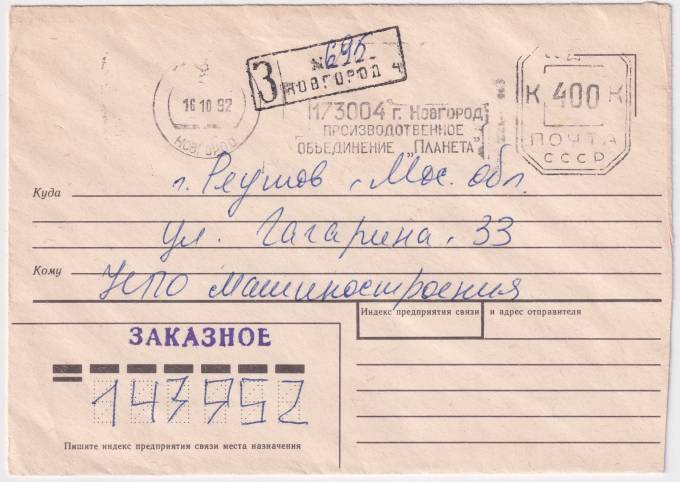 № 695
З НОВГОРОД 4
16 10 92
НОВГОРОД
173004 г. НОВГОРОД
ПРОИЗВОДСТВЕННОЕ
ОБЪЕДИНЕНИЕ "ПЛАНЕТА"
К 400 К
ПОЧТА
СССР
Куда г. Реутов, Мос. обл.
ул. Гагарина. 33
Кому НПО Машиностроения
Индекс предприятия связи и адрес отправителя
ЗАКАЗНОЕ
143952
Пишите индекс предприятия связи места назначения